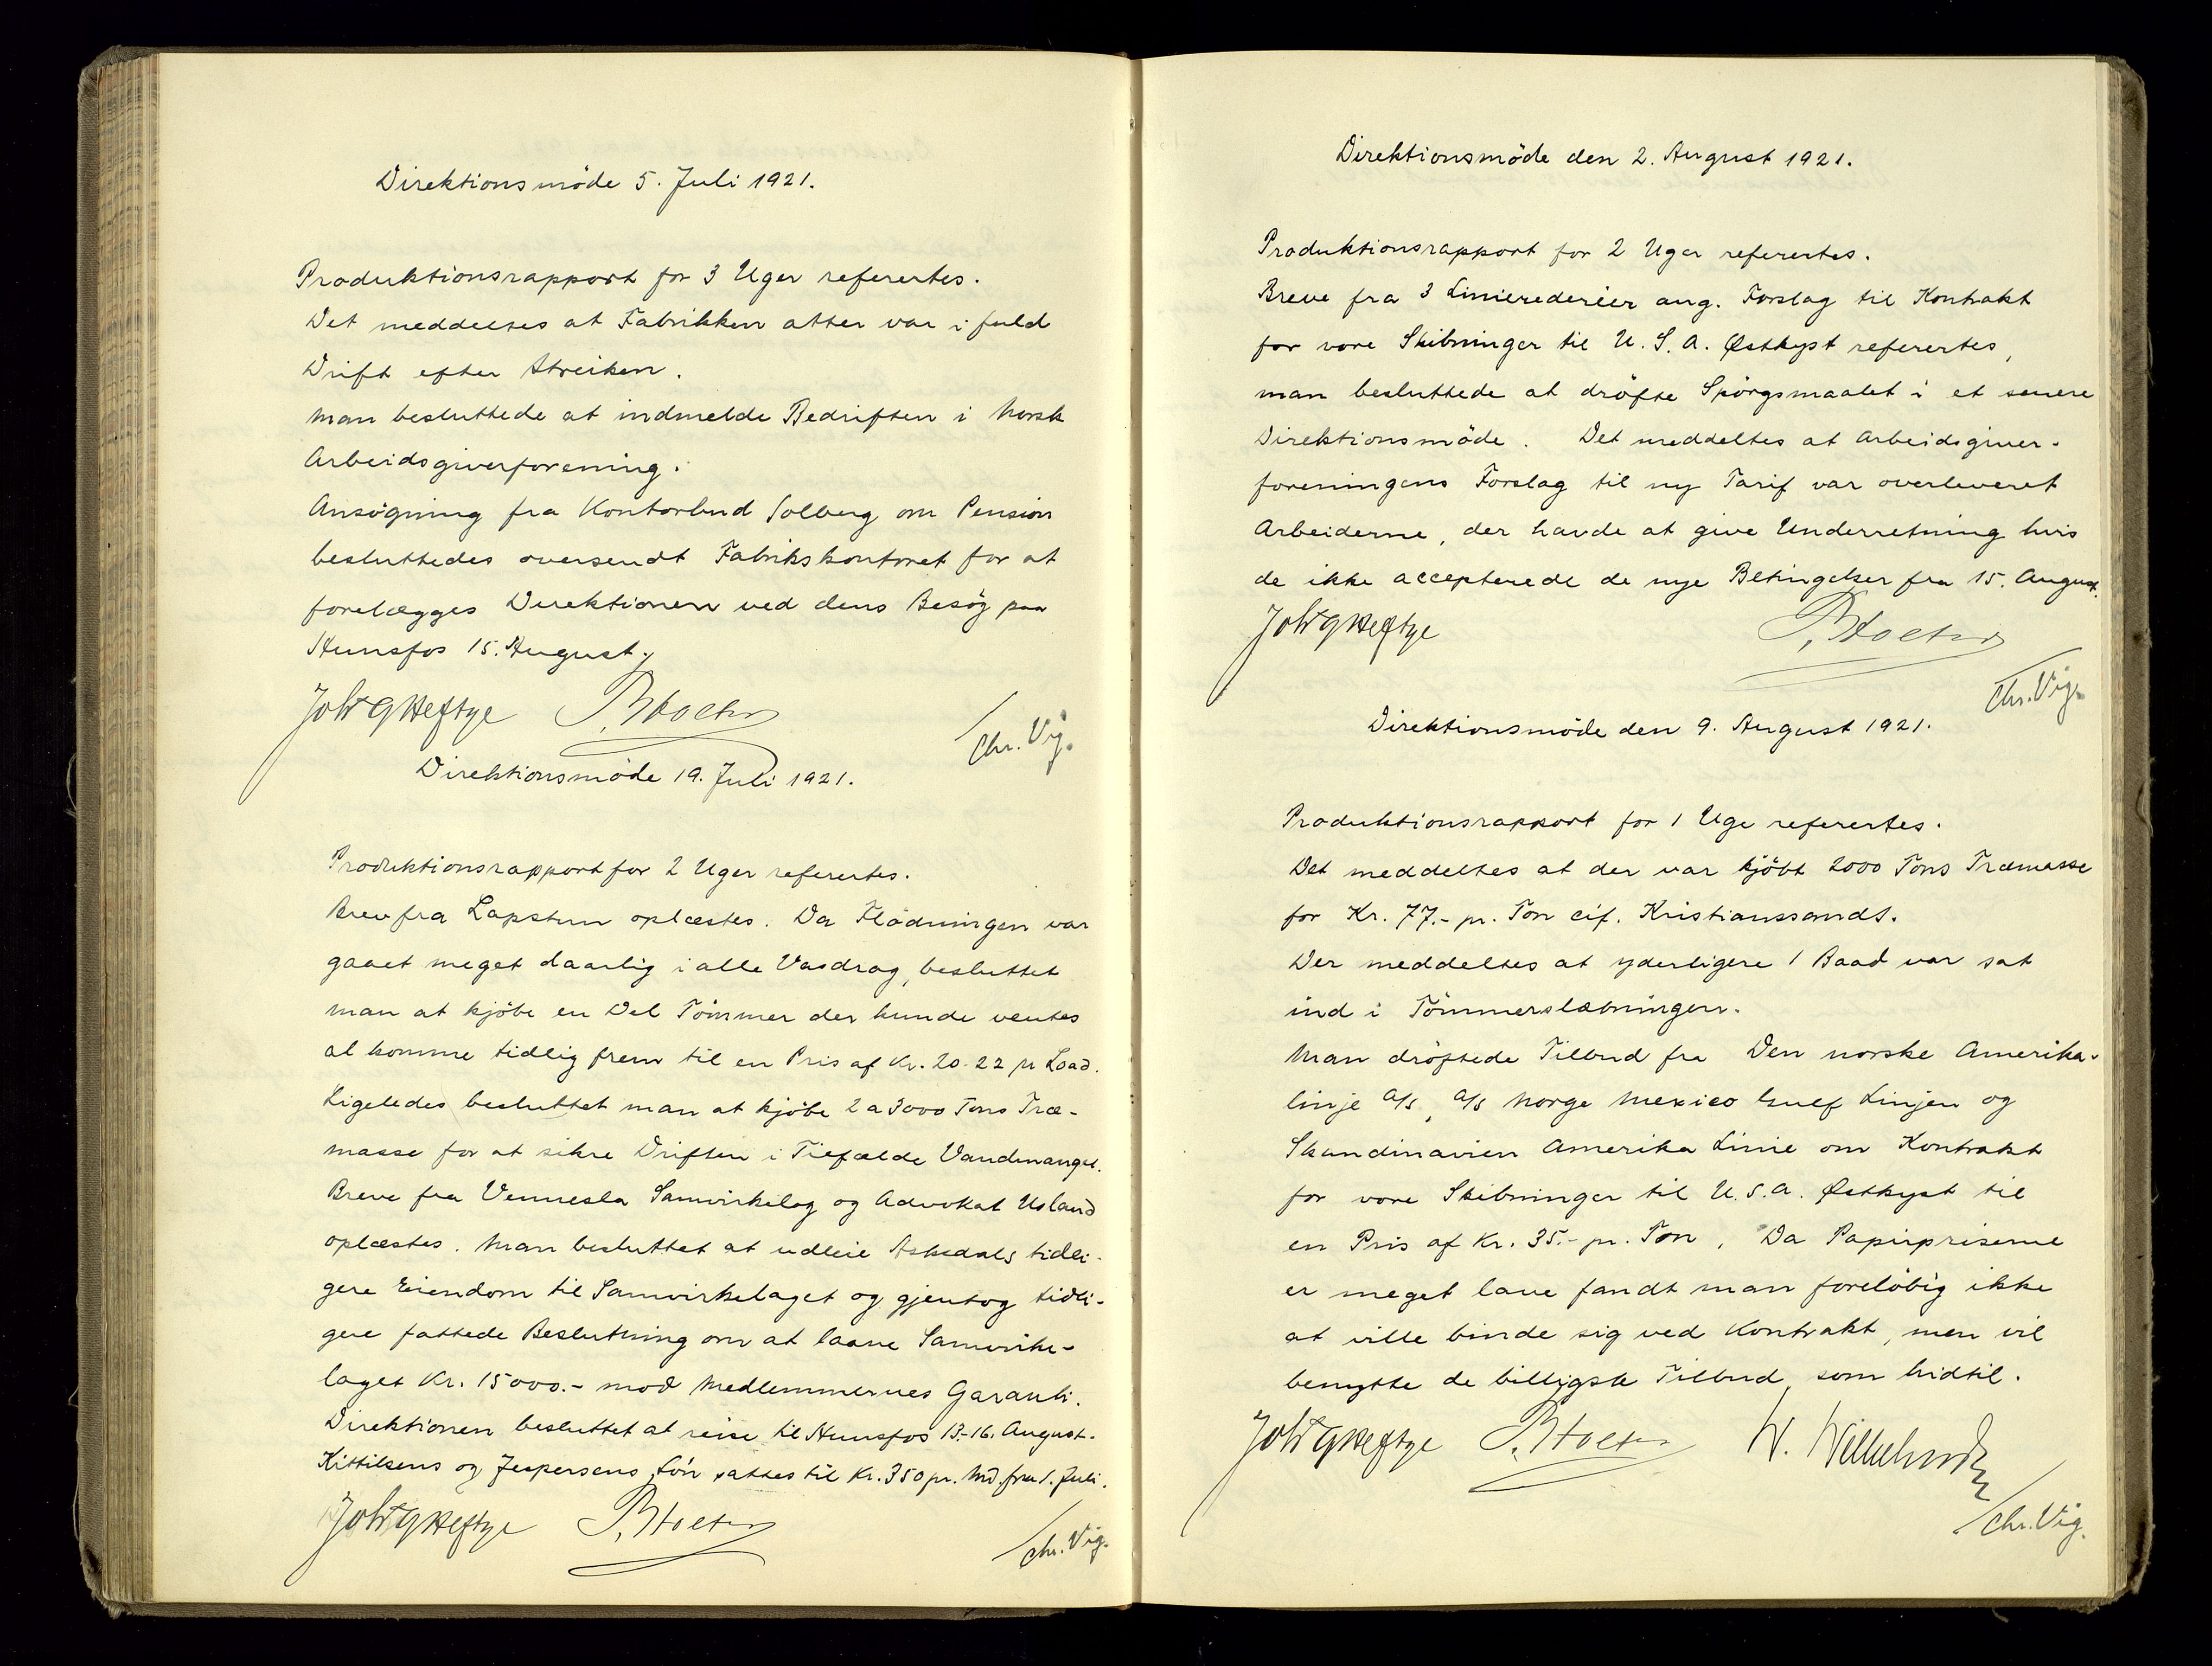 Direktionsmöde 5. Juli 1921.
Produktionsrapport for 3 Uger referertes.
Det meddeltes at Fabrikken atter var i fuld
Drift efter Streiken.
Man besluttede at indmelde Bedriften i Norsk
Arbeidsgiverforening.
Ansögning fra Kontorbud Solberg om Pension
besluttedes oversendt Fabrikskontoret for at
forelægges Direktionen ved dens Besög paa
Hunsfos 15. August.
Joh T G Heftye
Chr. Vig.
Direktionsmöde 19. Juli 1921.
Produktionsrapport for 2 Uger referertes.
Brev fra Lapstun oplæstes. Da Flödningen var
gaaet meget daarlig i alle Vasdrag, besluttet
man at kjöbe en Del Tömmer der kunde ventes
at komme tidlig frem til en Pris af Kr. 20-22 pr Load.
Ligeledes besluttet man at kjöbe 2 a 3000 Tons Træ-
masse for at sikre Driften i Tilfælde Vandmangel.
Breve fra Vennesla Samvirkelag og Advokat Usland
oplæstes. Man besluttet at udleie Askedals tidli-
gere Eiendom til Samvirkelaget og gjentog tidli-
gere fattede Beslutning om at laane Samvirke-
laget Kr. 15000.- mod Medlemmernes Garanti.
Direktionen besluttet at reise til Hunsfos 13.-16. August.
Kittilsens og Jespersens Lön sattes til Kr. 350 pr. Md. fra 1. Juli.
Joh T G Heftye
Chr. Vig.
Direktionsmöde den 2. August 1921.
Produktionsrapport for 2 Uger referertes.
Breve fra 3 Linierederier ang. Forslag til Kontrakt
for vore Skibninger til U.S.A. Østkyst referertes,
man besluttede at dröfte Spörgsmaalet i et senere
Direktionsmöde. Det meddeltes at Arbeidsgiver-
foreningens Forslag til ny Tarif var overleveret
Arbeiderne, der havde at give Underretning hvis
de ikke accepterede de nye Betingelser fra 15. August.
Joh T G Heftye
Chr. Vig.
Direktionsmöde den 9. August 1921.
Produktionsrapport for 1 Uge referertes.
Det meddeltes at der var kjöbt 2000 Tons Træmasse
for Kr. 77.- pr. Ton cif. Kristianssand S.
Der meddeltes at yderligere 1 Baad var sat
ind i Tömmerslæbningen.
Man dröftede Tilbud fra Den norske Amerika-
linje A/S, A/S Norge Mexico Gulf Linjen og
Skandinavien Amerika Linie om Kontrakt
for vore Skibninger til U.S.A. Østkyst til
en Pris af Kr. 35.- pr. Ton. Da Papirpriserne
er meget lave fandt man foreløbig ikke
at ville binde sig ved Kontrakt, men vil
benytte de billigste Tilbud, som hidtil.
Joh T G Heftye
Chr. Vig.